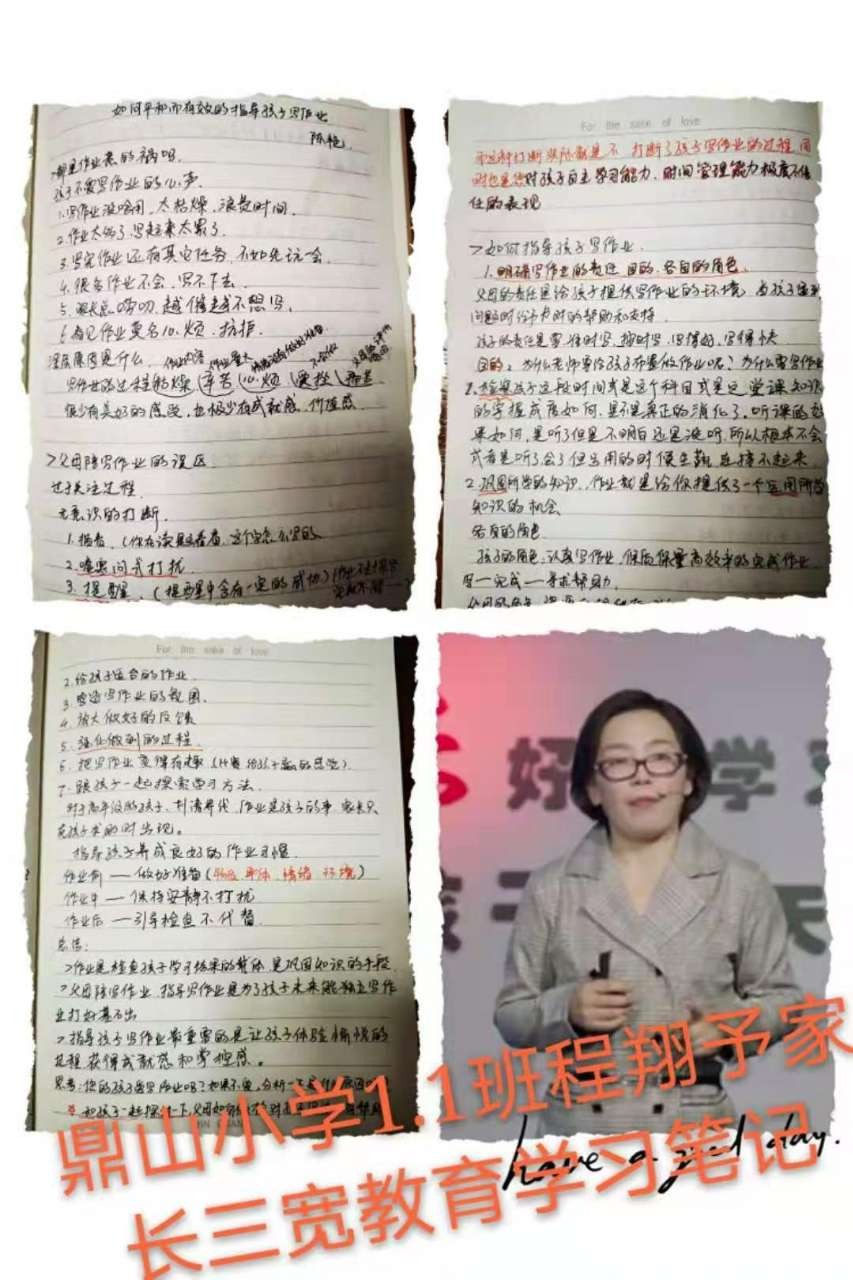 如何平和而有效的指导孩子写作业
陈艳
>都是作业惹的祸吗
孩子不爱写作业的心声
1.写作业没啥用,太枯燥,浪费时间.
2.作业太多了,写起来太累了
3.写完作业还有其它任务,不如先玩一会.
4.很多作业不会,写不下去.
5.家长总唠叨,越催越不想写.
6.看见作业莫名心烦,抗拒.
深层原因是什么.
作业内容 作业量大
写作业的过程枯燥 辛苦 心烦 受挫
很少有美好的感受,也极少有成就感.价值感
>父母陪写作业的误区.
过于关注过程.
无意识的打断.
1.指责.(你在读题去看看,这个字怎么写的
2.嘘寒问暖打扰
3.提醒.(提醒里中含有一定的威胁)
For the sake of love
而这种打断实际都是不 打断了孩子写作业的过程.同
时也是您对孩子自主学习能力,时间管理能力极度不信
任的表现
>如何指导孩子写作业.
1.明确写作业的责任.目的.各自的角色.
父母的责任是给孩子提供写作业的环境,当孩子遇到
问题时给予力所的帮助和支持.
孩子的责任是要准时写.按时写.写得好.写得快
目的:为什么老师要给孩子布置做作业呢?为什么需写作业
1.检查孩子这段时间或是这个科目或是这堂课知识
的掌握程度如何,是不是真正的消化了.听课的效
果如何,是听了但是不明白还是没听,所以根本不会
或者是听了会了但当用的时候生疏,连接不起来.
2.巩固所学的知识.作业就是给你提供了一个运用所学
知识的机会
各自的角色.
孩子的角色:认真写作业,保质保量高效率的完成作业.
写—完成—寻求帮助.
For the sake of love
2.给孩子适合的作业.
3.营造写作业的氛围.
4.放大做好的反馈
5.强化做到的过程.
6.把写作业变得有趣(比赛 给孩子赢的感觉).
7.跟孩子一起探索学习方法.
对于高年级的孩子,划清界线,作业是孩子的事,家长只
在孩子求助时出现.
指导孩子养成良好的作业习惯.
作业前—做好准备(物品 身体 情绪 环境)
作业中—保持安静不打扰
作业后—引导检查不代替.
总结:
>作业是检查孩子学习结果的载体,是巩固知识的手段.
>父母陪写作业,指导写作业是为了孩子未来能独立写作
业打好基础
>指导孩子写作业最重要的是让孩子体验愉悦的
过程获得成就感和掌控感.
思考:您的孩子爱写作业吗?如果不爱,分析一下
和孩子一起探讨一下,父母如何
好 学 习
孩子 天
鼎山小学1.1班程翔予家
长三宽教育学习笔记
have a good day.